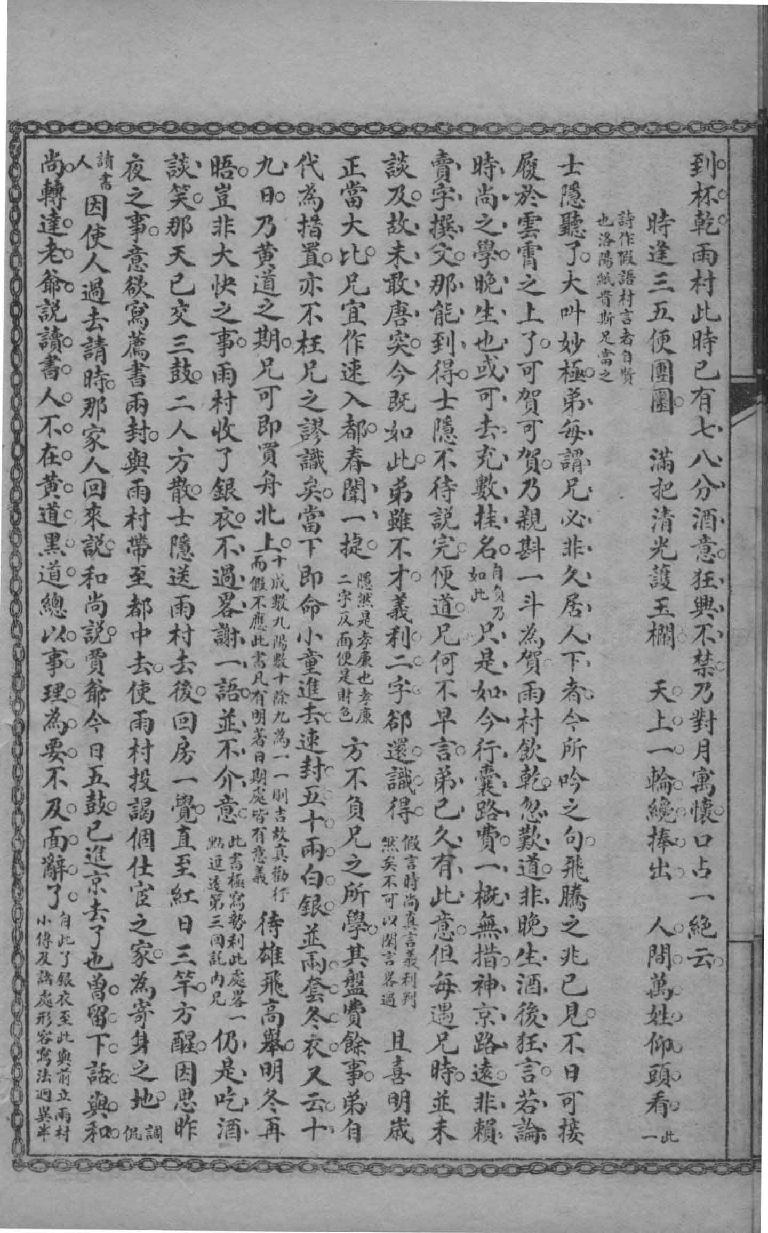 到杯乾雨村此時已有七八分酒意狂興不禁乃對月寓懷口占一絕云
時逢三五便團圞　滿把清光護玉欄　天上一輪纔捧出　人間萬姓仰頭看此一
詩作假語村言者自贊也洛陽紙貴斯足當之
士隱聽了大叫妙極弟每謂兄必非久居人下者今所吟之句飛騰之兆已見不日可接
履於雲霄之上了可賀可賀乃親斟一斗為賀雨村飲乾忽歎道非晚生酒後狂言若論
時尚之學晚生也或可去充數挂名自負乃如此只是如今行囊路費一概無措神京路遠非賴
賣字撰文那能到得士隱不待説完便道兄何不早言弟已久有此意但每遇兄時並未
談及故未敢唐突今既如此弟雖不才義利二字卻還識得假言時尚真言義利判然矣不可以閑言畧過且喜明歲
正當大比兄宜作速入都春闈一捷隱然是孝廉也孝廉二字反面便是財色方不負兄之所學其盤費餘事弟自
代為措置亦不枉兄之謬識矣當下即命小童進去速封五十兩白銀並兩套冬衣又云十
九日乃黄道之期兄可即買舟北上十成數九陽數十除九為一一則吉故真勸行而假不應此書凡有明著日期處皆有意義待雄飛高舉明冬再
晤豈非大快之事雨村收了銀衣不過畧謝一語並不介意此書極寫勢利此處畧一點逗遙第三回託內兄仍是吃酒
談笑那天已交三鼓二人方散士隱送雨村去後回房一覺直至紅日三竿方醒因思昨
夜之事意欲寫薦書兩封與雨村帶至都中去使雨村投謁個仕宦之家為寄身之地調侃
讀書人因使人過去請時那家人回來説和尚説賈爺今日五鼓已進京去了也曾留下話與和
尚轉達老爺説讀書人不在黄道黑道總以事理為要不及面辭了自此了銀衣至此與前立雨村小傳及諸處形容寫法迥異半